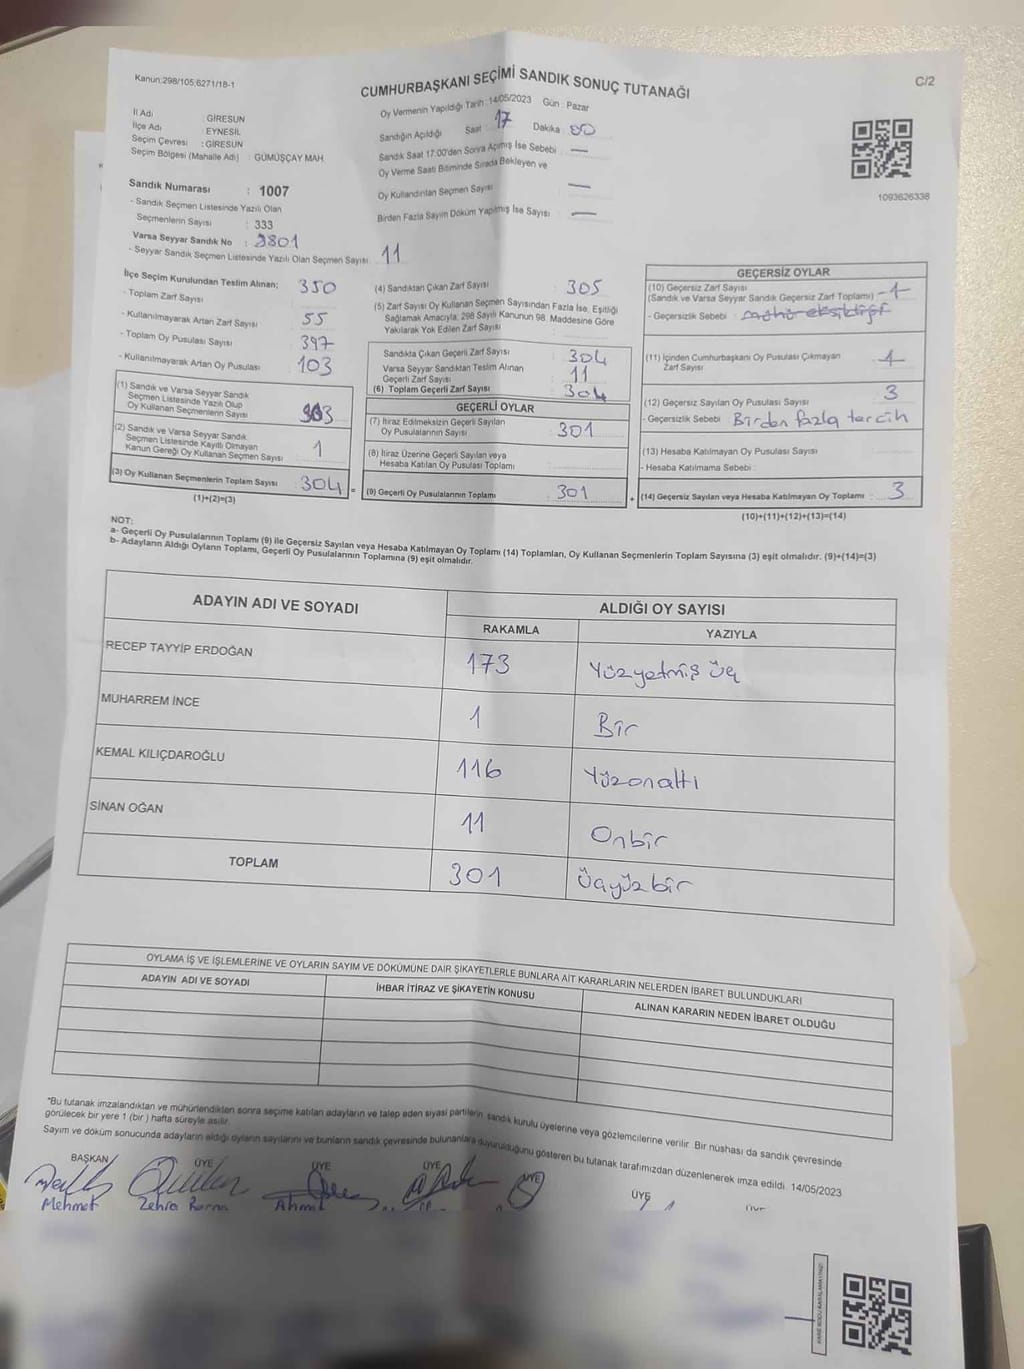 Kanun:298/105,6271/18-1
C/2
CUMHURBAŞKANI SEÇİMİ SANDIK SONUÇ TUTANAĞI
İl Adı : GİRESUN
İlçe Adı : EYNESİL
Seçim Çevresi : GİRESUN
Seçim Bölgesi (Mahalle Adı) : GÜMÜŞÇAY MAH
Sandık Numarası : 1007
- Sandık Seçmen Listesinde Yazılı Olan
Seçmenlerin Sayısı : 333
Varsa Seyyar Sandık No : 3801
- Seyyar Sandık Seçmen Listesinde Yazılı Olan Seçmen Sayısı 11
Oy Vermenin Yapıldığı Tarih :14/05/2023 Gün : Pazar
Sandığın Açıldığı Saat : 17 Dakika : 00
Sandık Saat 17:00'den Sonra Açılmış İse Sebebi : —
Oy Verme Saati Bitiminde Sırada Bekleyen ve
Oy Kullandırılan Seçmen Sayısı —
Birden Fazla Sayım Döküm Yapılmış İse Sayısı : —
1093626338
İlçe Seçim Kurulundan Teslim Alınan;
- Toplam Zarf Sayısı : 350
- Kullanılmayarak Artan Zarf Sayısı 55
- Toplam Oy Pusulası Sayısı : 397
- Kullanılmayarak Artan Oy Pusulası 103
(1) Sandık ve Varsa Seyyar Sandık
Seçmen Listesinde Yazılı Olup
Oy Kullanan Seçmenlerin Sayısı : 303
(2) Sandık ve Varsa Seyyar Sandık
Seçmen Listesinde Kayıtlı Olmayan
Kanun Gereği Oy Kullanan Seçmen Sayısı 1
(3) Oy Kullanan Seçmenlerin Toplam Sayısı : 304
(1)+(2)=(3)
(4) Sandıktan Çıkan Zarf Sayısı : 305
(5) Zarf Sayısı Oy Kullanan Seçmen Sayısından Fazla İse, Eşitliği
Sağlamak Amacıyla, 298 Sayılı Kanunun 98. Maddesine Göre
Yakılarak Yok Edilen Zarf Sayısı
Sandıkta Çıkan Geçerli Zarf Sayısı : 304
Varsa Seyyar Sandıktan Teslim Alınan
Geçerli Zarf Sayısı 11
(6) Toplam Geçerli Zarf Sayısı 304
GEÇERLİ OYLAR
(7) İtiraz Edilmeksizin Geçerli Sayılan
Oy Pusulalarının Sayısı : 301
(8) İtiraz Üzerine Geçerli Sayılan veya
Hesaba Katılan Oy Pusulası Toplamı
(9) Geçerli Oy Pusulalarının Toplamı : 301
GEÇERSİZ OYLAR
(10) Geçersiz Zarf Sayısı
(Sandık ve Varsa Seyyar Sandık Geçersiz Zarf Toplamı) - 1
- Geçersizlik Sebebi : mühür eksikliği
(11) İçinden Cumhurbaşkanı Oy Pusulası Çıkmayan
Zarf Sayısı 1
(12) Geçersiz Sayılan Oy Pusulası Sayısı : 3
- Geçersizlik Sebebi : Birden fazla tercih
(13) Hesaba Katılmayan Oy Pusulası Sayısı :
- Hesaba Katılmama Sebebi :
(14) Geçersiz Sayılan veya Hesaba Katılmayan Oy Toplamı : 3
(10)+(11)+(12)+(13)=(14)
NOT:
a- Geçerli Oy Pusulalarının Toplamı (9) ile Geçersiz Sayılan veya Hesaba Katılmayan Oy Toplamı (14) Toplamları, Oy Kullanan Seçmenlerin Toplam Sayısına (3) eşit olmalıdır. (9)+(14)=(3)
b- Adayların Aldığı Oyların Toplamı, Geçerli Oy Pusulalarının Toplamına (9) eşit olmalıdır.
ADAYIN ADI VE SOYADI ALDIĞI OY SAYISI
RAKAMLA YAZIYLA
RECEP TAYYİP ERDOĞAN 173 Yüzyetmiş üç
MUHARREM İNCE 1 Bir
KEMAL KILIÇDAROĞLU 116 Yüzonaltı
SİNAN OĞAN 11 Onbir
TOPLAM 301 Üçyüzbir
OYLAMA İŞ VE İŞLEMLERİNE VE OYLARIN SAYIM VE DÖKÜMÜNE DAİR ŞİKAYETLERLE BUNLARA AİT KARARLARIN NELERDEN İBARET BULUNDUKLARI
ADAYIN ADI VE SOYADI İHBAR İTİRAZ VE ŞİKAYETİN KONUSU ALINAN KARARIN NEDEN İBARET OLDUĞU
*Bu tutanak imzalandıktan ve mühürlendikten sonra seçime katılan adayların ve talep eden siyasi partilerin, sandık kurulu üyelerine veya gözlemcilerine verilir. Bir nüshası da sandık çevresinde
görülecek bir yere 1 (bir ) hafta süreyle asılır.
Sayım ve döküm sonucunda adayların aldığı oyların sayılarını ve bunların sandık çevresinde bulunanlara duyurulduğunu gösteren bu tutanak tarafımızdan düzenlenerek imza edildi. 14/05/2023
BAŞKAN ÜYE ÜYE ÜYE ÜYE ÜYE ÜYE
Mehmet Zehra Ahmet